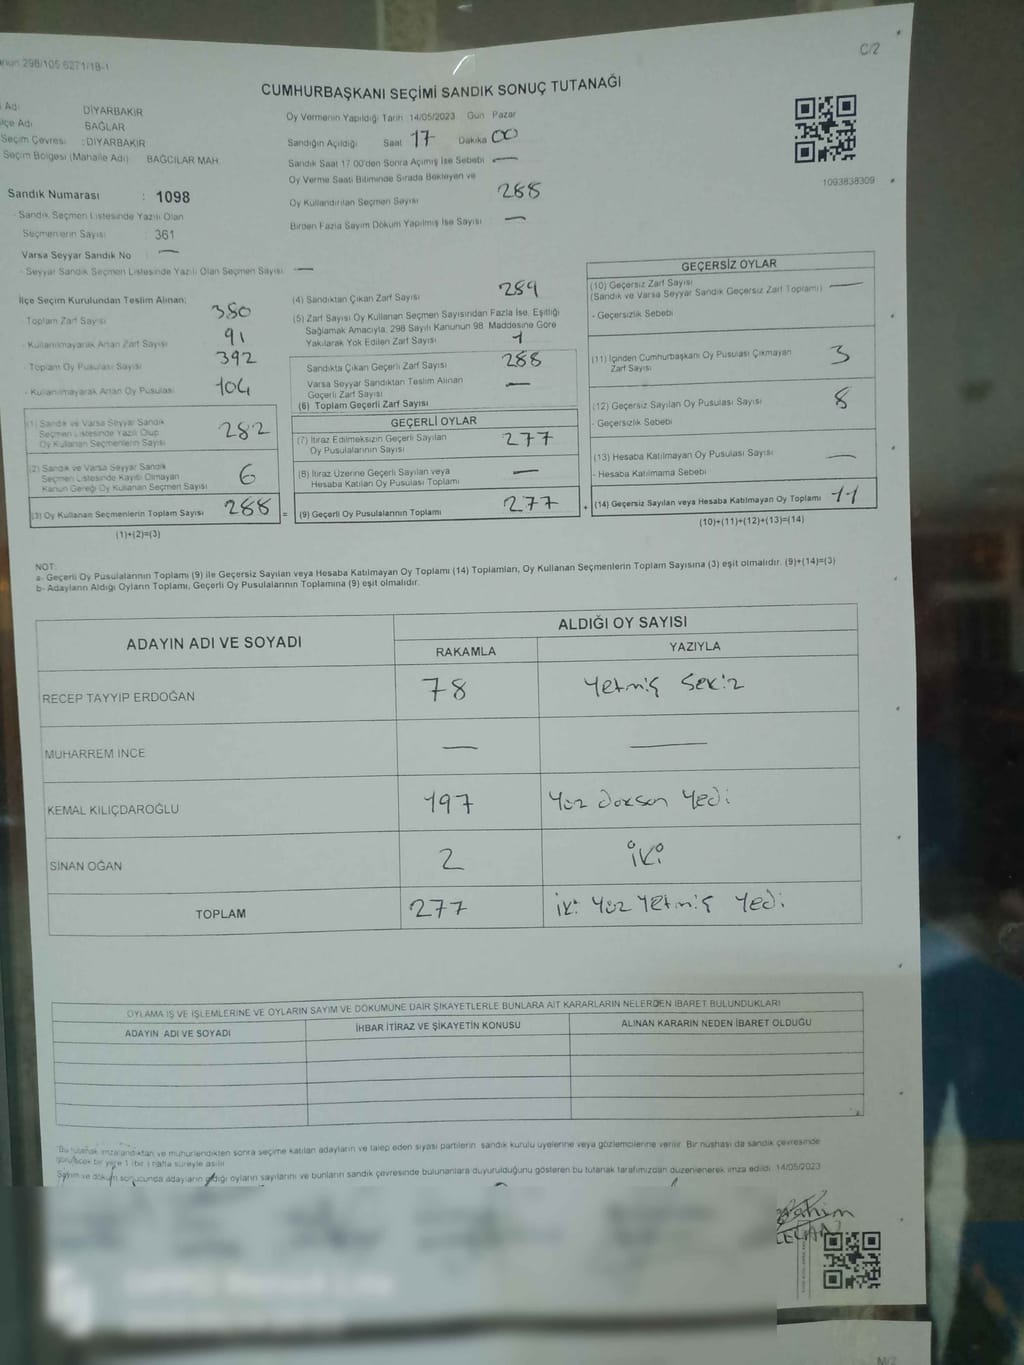 298/105.6271/1B-1
C/2
CUMHURBAŞKANI SEÇİMİ SANDIK SONUÇ TUTANAĞI
Adı DİYARBAKIR
İlçe Adı BAĞLAR
Seçim Çevresi : DİYARBAKIR
Seçim Bölgesi (Mahalle Adı) BAĞCILAR MAH.
Oy Vermenin Yapıldığı Tarih 14/05/2023 Gün Pazar
Sandığın Açıldığı Saat 17 Dakika 00
Sandık Saat 17.00'den Sonra Açımış İse Sebebi —
Oy Verme Saati Bitiminde Sırada Bekleyen ve
Oy Kullandırılan Seçmen Sayısı 288
Birden Fazla Sayım Döküm Yapılmış İse Sayısı —
1093838309
Sandık Numarası : 1098
- Sandık Seçmen Listesinde Yazılı Olan
Seçmenlerin Sayısı : 361
Varsa Seyyar Sandık No —
- Seyyar Sandık Seçmen Listesinde Yazılı Olan Seçmen Sayısı —
İlçe Seçim Kurulundan Teslim Alınan;
- Toplam Zarf Sayısı 380
- Kullanılmayarak Artan Zarf Sayısı 91
- Toplam Oy Pusulası Sayısı 392
- Kullanılmayarak Artan Oy Pusulası 104
(1) Sandık ve Varsa Seyyar Sandık
Seçmen Listesinde Yazılı Olup
Oy Kullanan Seçmenlerin Sayısı 282
(2) Sandık ve Varsa Seyyar Sandık
Seçmen Listesinde Kayıtlı Olmayan
Kanun Gereği Oy Kullanan Seçmen Sayısı 6
(3) Oy Kullanan Seçmenlerin Toplam Sayısı 288 =
(1)+(2)=(3)
(4) Sandıktan Çıkan Zarf Sayısı 289
(5) Zarf Sayısı Oy Kullanan Seçmen Sayısından Fazla İse, Eşitliği
Sağlamak Amacıyla, 298 Sayılı Kanunun 98. Maddesine Göre
Yakılarak Yok Edilen Zarf Sayısı 1
Sandıkta Çıkan Geçerli Zarf Sayısı 288
Varsa Seyyar Sandıktan Teslim Alınan
Geçerli Zarf Sayısı —
(6) Toplam Geçerli Zarf Sayısı
GEÇERLİ OYLAR
(7) İtiraz Edilmeksizin Geçerli Sayılan
Oy Pusulalarının Sayısı 277
(8) İtiraz Üzerine Geçerli Sayılan veya
Hesaba Katılan Oy Pusulası Toplamı —
(9) Geçerli Oy Pusulalarının Toplamı 277 +
GEÇERSİZ OYLAR
(10) Geçersiz Zarf Sayısı
(Sandık ve Varsa Seyyar Sandık Geçersiz Zarf Toplamı) —
- Geçersizlik Sebebi
(11) İçinden Cumhurbaşkanı Oy Pusulası Çıkmayan
Zarf Sayısı 3
(12) Geçersiz Sayılan Oy Pusulası Sayısı 8
- Geçersizlik Sebebi
(13) Hesaba Katılmayan Oy Pusulası Sayısı —
- Hesaba Katılmama Sebebi
(14) Geçersiz Sayılan veya Hesaba Katılmayan Oy Toplamı 11
(10)+(11)+(12)+(13)=(14)
NOT:
a- Geçerli Oy Pusulalarının Toplamı (9) ile Geçersiz Sayılan veya Hesaba Katılmayan Oy Toplamı (14) Toplamları, Oy Kullanan Seçmenlerin Toplam Sayısına (3) eşit olmalıdır. (9)+(14)=(3)
b- Adayların Aldığı Oyların Toplamı, Geçerli Oy Pusulalarının Toplamına (9) eşit olmalıdır.
ADAYIN ADI VE SOYADI ALDIĞI OY SAYISI
RAKAMLA YAZIYLA
RECEP TAYYİP ERDOĞAN 78 Yetmiş Sekiz
MUHARREM İNCE — —
KEMAL KILIÇDAROĞLU 197 Yüz doksan Yedi
SİNAN OĞAN 2 İki
TOPLAM 277 iki Yüz Yetmiş Yedi
OYLAMA İŞ VE İŞLEMLERİNE VE OYLARIN SAYIM VE DÖKÜMÜNE DAİR ŞİKAYETLERLE BUNLARA AİT KARARLARIN NELERDEN İBARET BULUNDUKLARI
ADAYIN ADI VE SOYADI İHBAR İTİRAZ VE ŞİKAYETİN KONUSU ALINAN KARARIN NEDEN İBARET OLDUĞU
Bu tutanak imzalandıktan ve mühürlendikten sonra seçime katılan adayların ve talep eden siyasi partilerin sandık kurulu üyelerine veya gözlemcilerine verilir. Bir nüshası da sandık çevresinde
görülecek bir yere 1 (bir) hafta süreyle asılır.
Sayım ve döküm sonucunda adayların aldığı oyların sayılarını ve bunların sandık çevresinde bulunanlara duyurulduğunu gösteren bu tutanak tarafımızdan düzenlenerek imza edildi. 14/05/2023